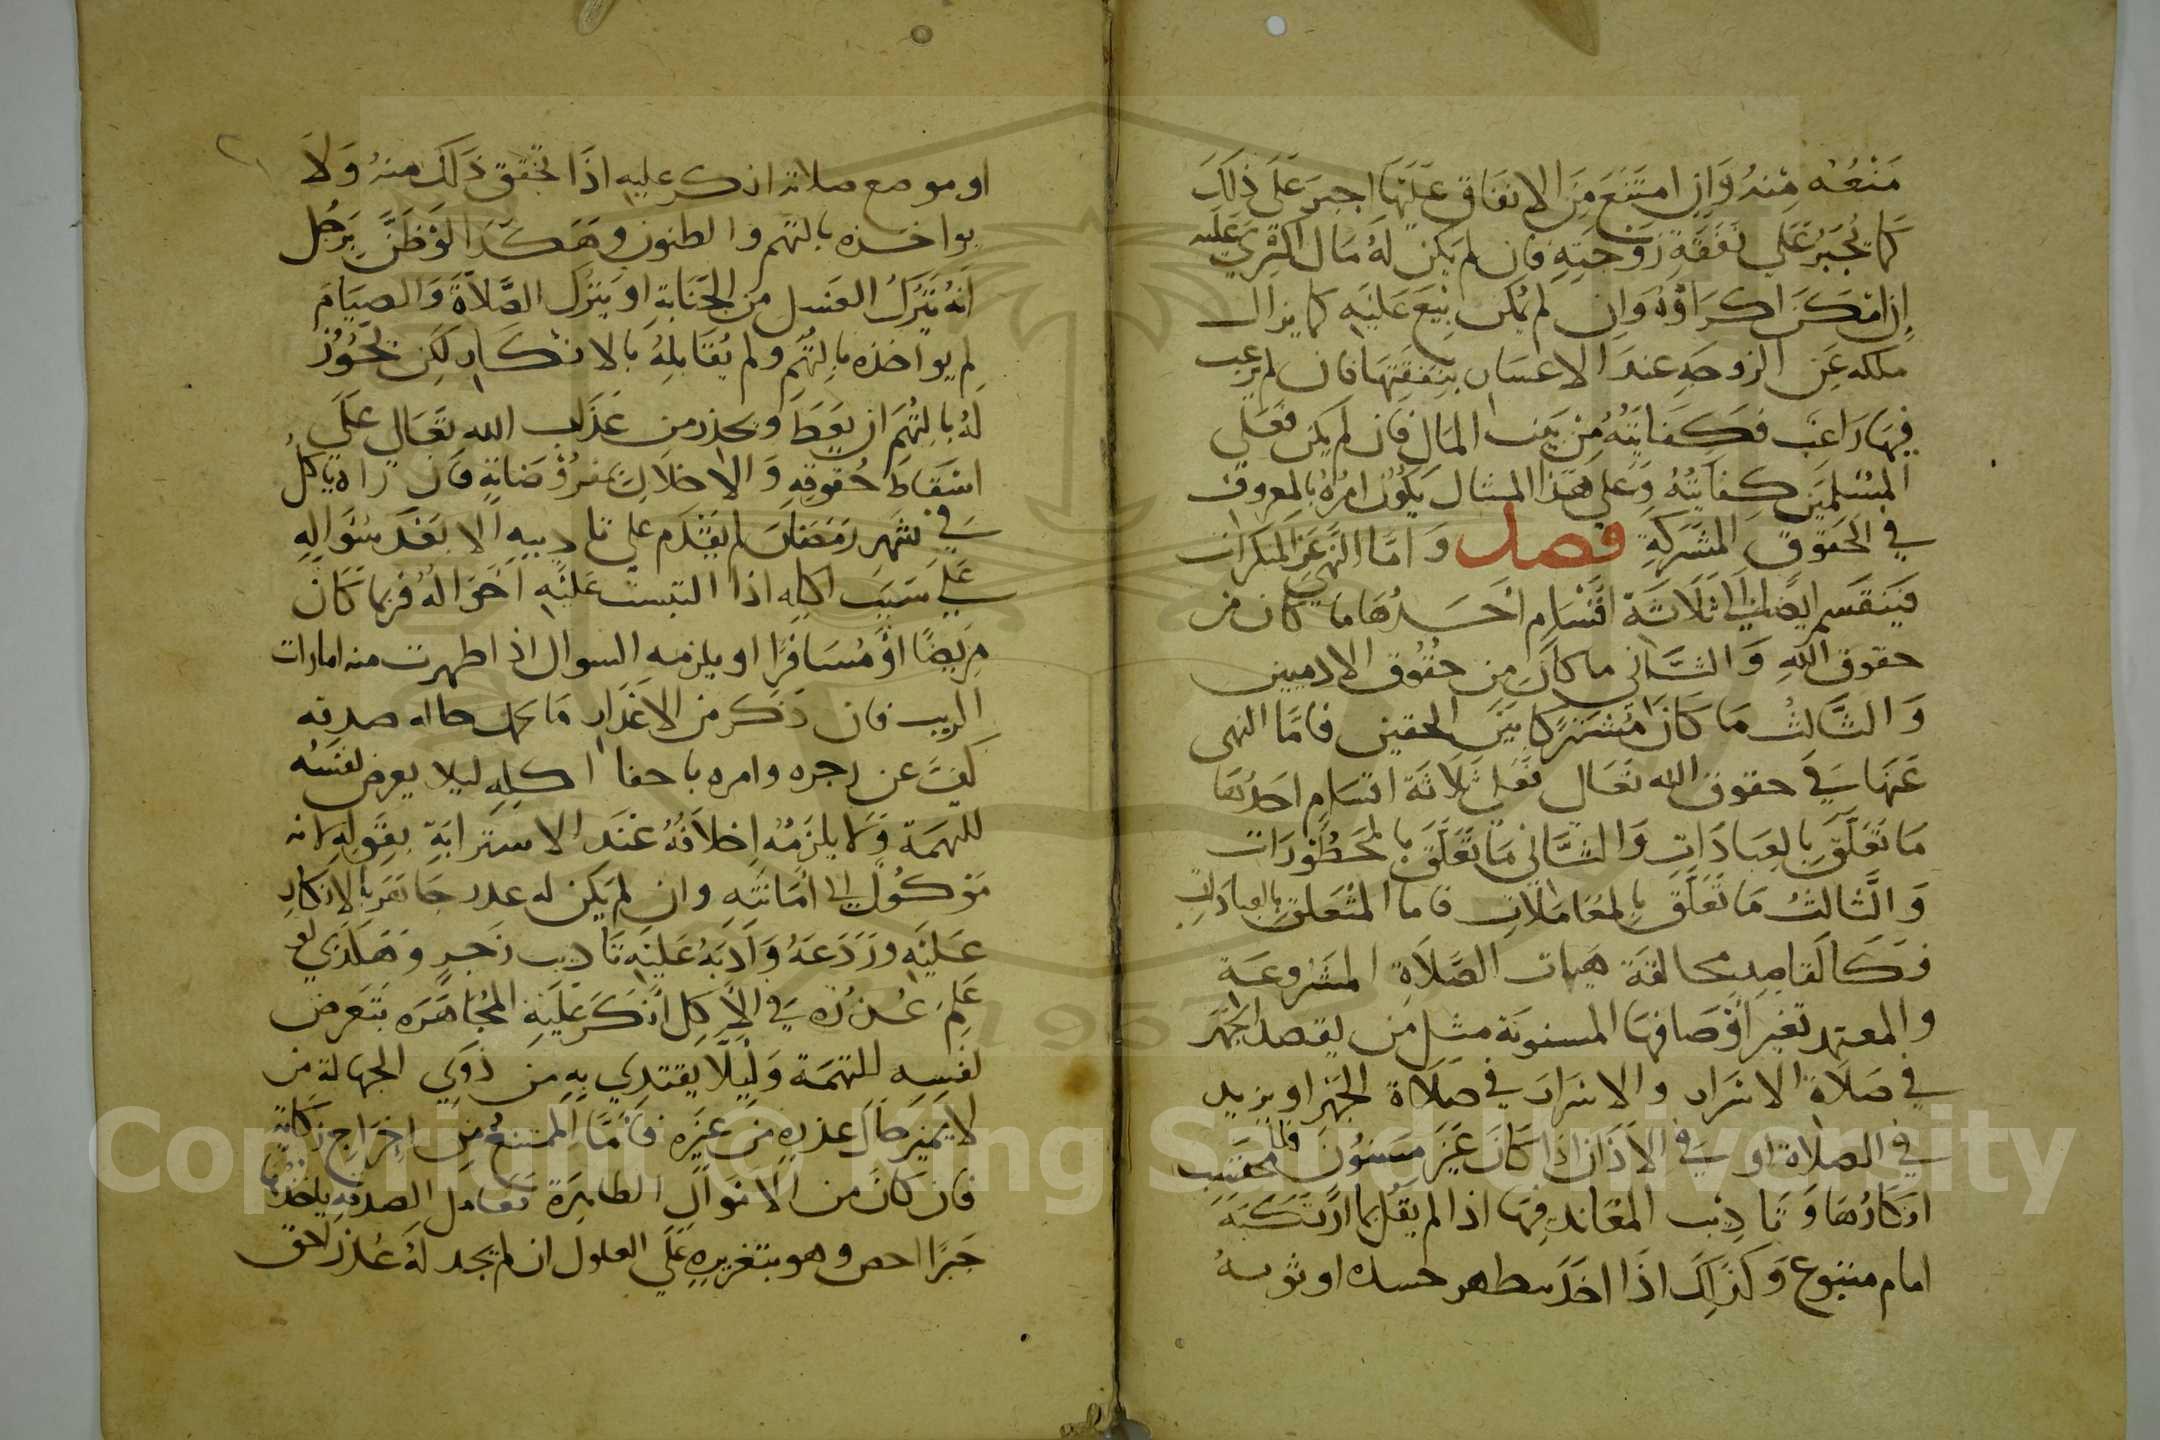 مَنْعُه مِنهُ وَاِن امتَنَعَ مِنَ الانفَاق عَلَيَها اجبرَ عَلَى ذلِكَ
كما يُجبَرُ عَلى نفَقَةِ زَوجَتِهِ فان لم يكن لهُ مَال اكتري عَلَيه
اِن امْكَنَ اكرَاوُهُ وَان لم يُمكن ابِيعَ عَليَه كما يزال
ملكه عَن الزوجه عندَ الاعسَار بنِفقِتهَا فان لم يرغب
فيهَا رَاغب فكِفايَتُهُ مِنْ بَيت المَال فان لم يكن فعَلى
المُسْلمَين كِفايَتُهُ وَعَلى هَذا المثال يَكُونُ امرُهُ بالمعروف
في الحَقوق المشْتركَةِ فصل وَامّا النَّهي عَن المنكرات
فينقَسِم ايضًا الى ثلَاثَة اقْسَام احَدُهَا مَا كَان من
حقوق اللهِ وَالثَّانى ما كان مِن حقُوق الادميين
وَالثَّالثُ مَا كَانَ مُشترِكا بَيْن الحقين فامَّا النهى
عَنهَا في حقوق الله تعَالى فعَلى ثلاثة اقسَام احَدُهَا
مَا تَعَلَّق بِالعِبَادَاتِ وَالثَّانى مَا تَعَلَّقَ بالمحَظُورَات
وَالثَّالثُ مَا تَعَلَّق بالمعَامَلات فاما المتَعلق بالعبادات
فكَالقاصِدِ مخالفة هيات الصَّلَاةِ المشَروعَة
والمعتمد تغير اوْصَافهَا المسنونَة مثِل من يقصد الجهر
في صَلاة الاسْرار والاسْرارَ في صَلاة الجَهرَ او يزيد
في الصلاة او في الاَذَان اذا كانَ غَير مسنُون فللمحتسب
انكارُهَا وَتاديْب المعَاند فِيها اذا لم يَقُل بما ارتكَبَهُ
امام متبوع وَكذلكَ اذَا اخَل بتطهر جسده او ثوبه
او موضع صلاته انكر عليه اذَا تحقق ذلَكَ منهُ وَلَا
يواخذه بالتهم والظنون وهكذَا لَوْ ظَنَّ بَرجُل
انهُ يَتركُ الغسل من الجَنَابَةِ او يَترك الصَّلاَةَ وَالصيَامَ
لم يواخذه بالتُّهَم ولم يُقَابلِهُ بالانكار لكن يَجُوز
لَهُ بالتُّهَم ان يعِظ ويحذر من عَذاب الله تعَالى عَلى
اسْقاط حُقوقِهِ وَالاخلال بمفرُوضَاتِهِ فان رَاه ياكل
في شهر رَمَضَان لم يقْدم على تاديبه الا بَعْدَ سُؤَالِهِ
عَلى سَبَبِ اكلِهِ اذا التبست عَليْه احوَالهُ فربما كَانَ
مَريضًا اوْ مُسَافرًا او يلزمه السوال اذا ظهرت منه امارات
الريب فان ذكر من الاعْذار مَا يحمل حاله صدقه
كفّ عن زجره وامره باخفا اكلِهِ ليلا يعرض نفسَه
للتهمَة وَلا يلزمُهُ اِخلافُهُ عِنْدَ الاسترابَةِ بقوله لانه
مَوكُول الى امَانَتهِ وان لم يَكن له عذر جَاهَر بالانكار
عَليه ورَدَعَهُ وَادَبَهُ عَليه تاديب زَجرٍ وَهكذي لو
عَلِمَ عُذرُه في الاَكِل انكَرَ عَليَه المُجَاهَرَه بتَعرض
نفسِه للتهمَة وَلئِلَّا يقتدِي بِهِ مِن ذوي الجهالة من
لا يميز حَال عذره من غيَره فامَّا الممتنِعُ مِن اخِرَاج زكاته
فان كانَ من الاَموَالِ الظاهِرَة فعَامل الصدقه ياخذها
جَبرًا اخص وهو بتعزيره عَلَى الغلول ان لم يجد لَهُ عُذر الحق
Copyright © King Saud University
1957